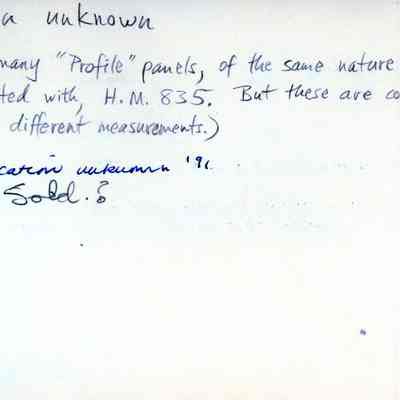 a unknown
many "Profile" panels, of the same nature
ted with, H.M. 835. But these are co
different measurements.)
cation unknown '91
Sold.?